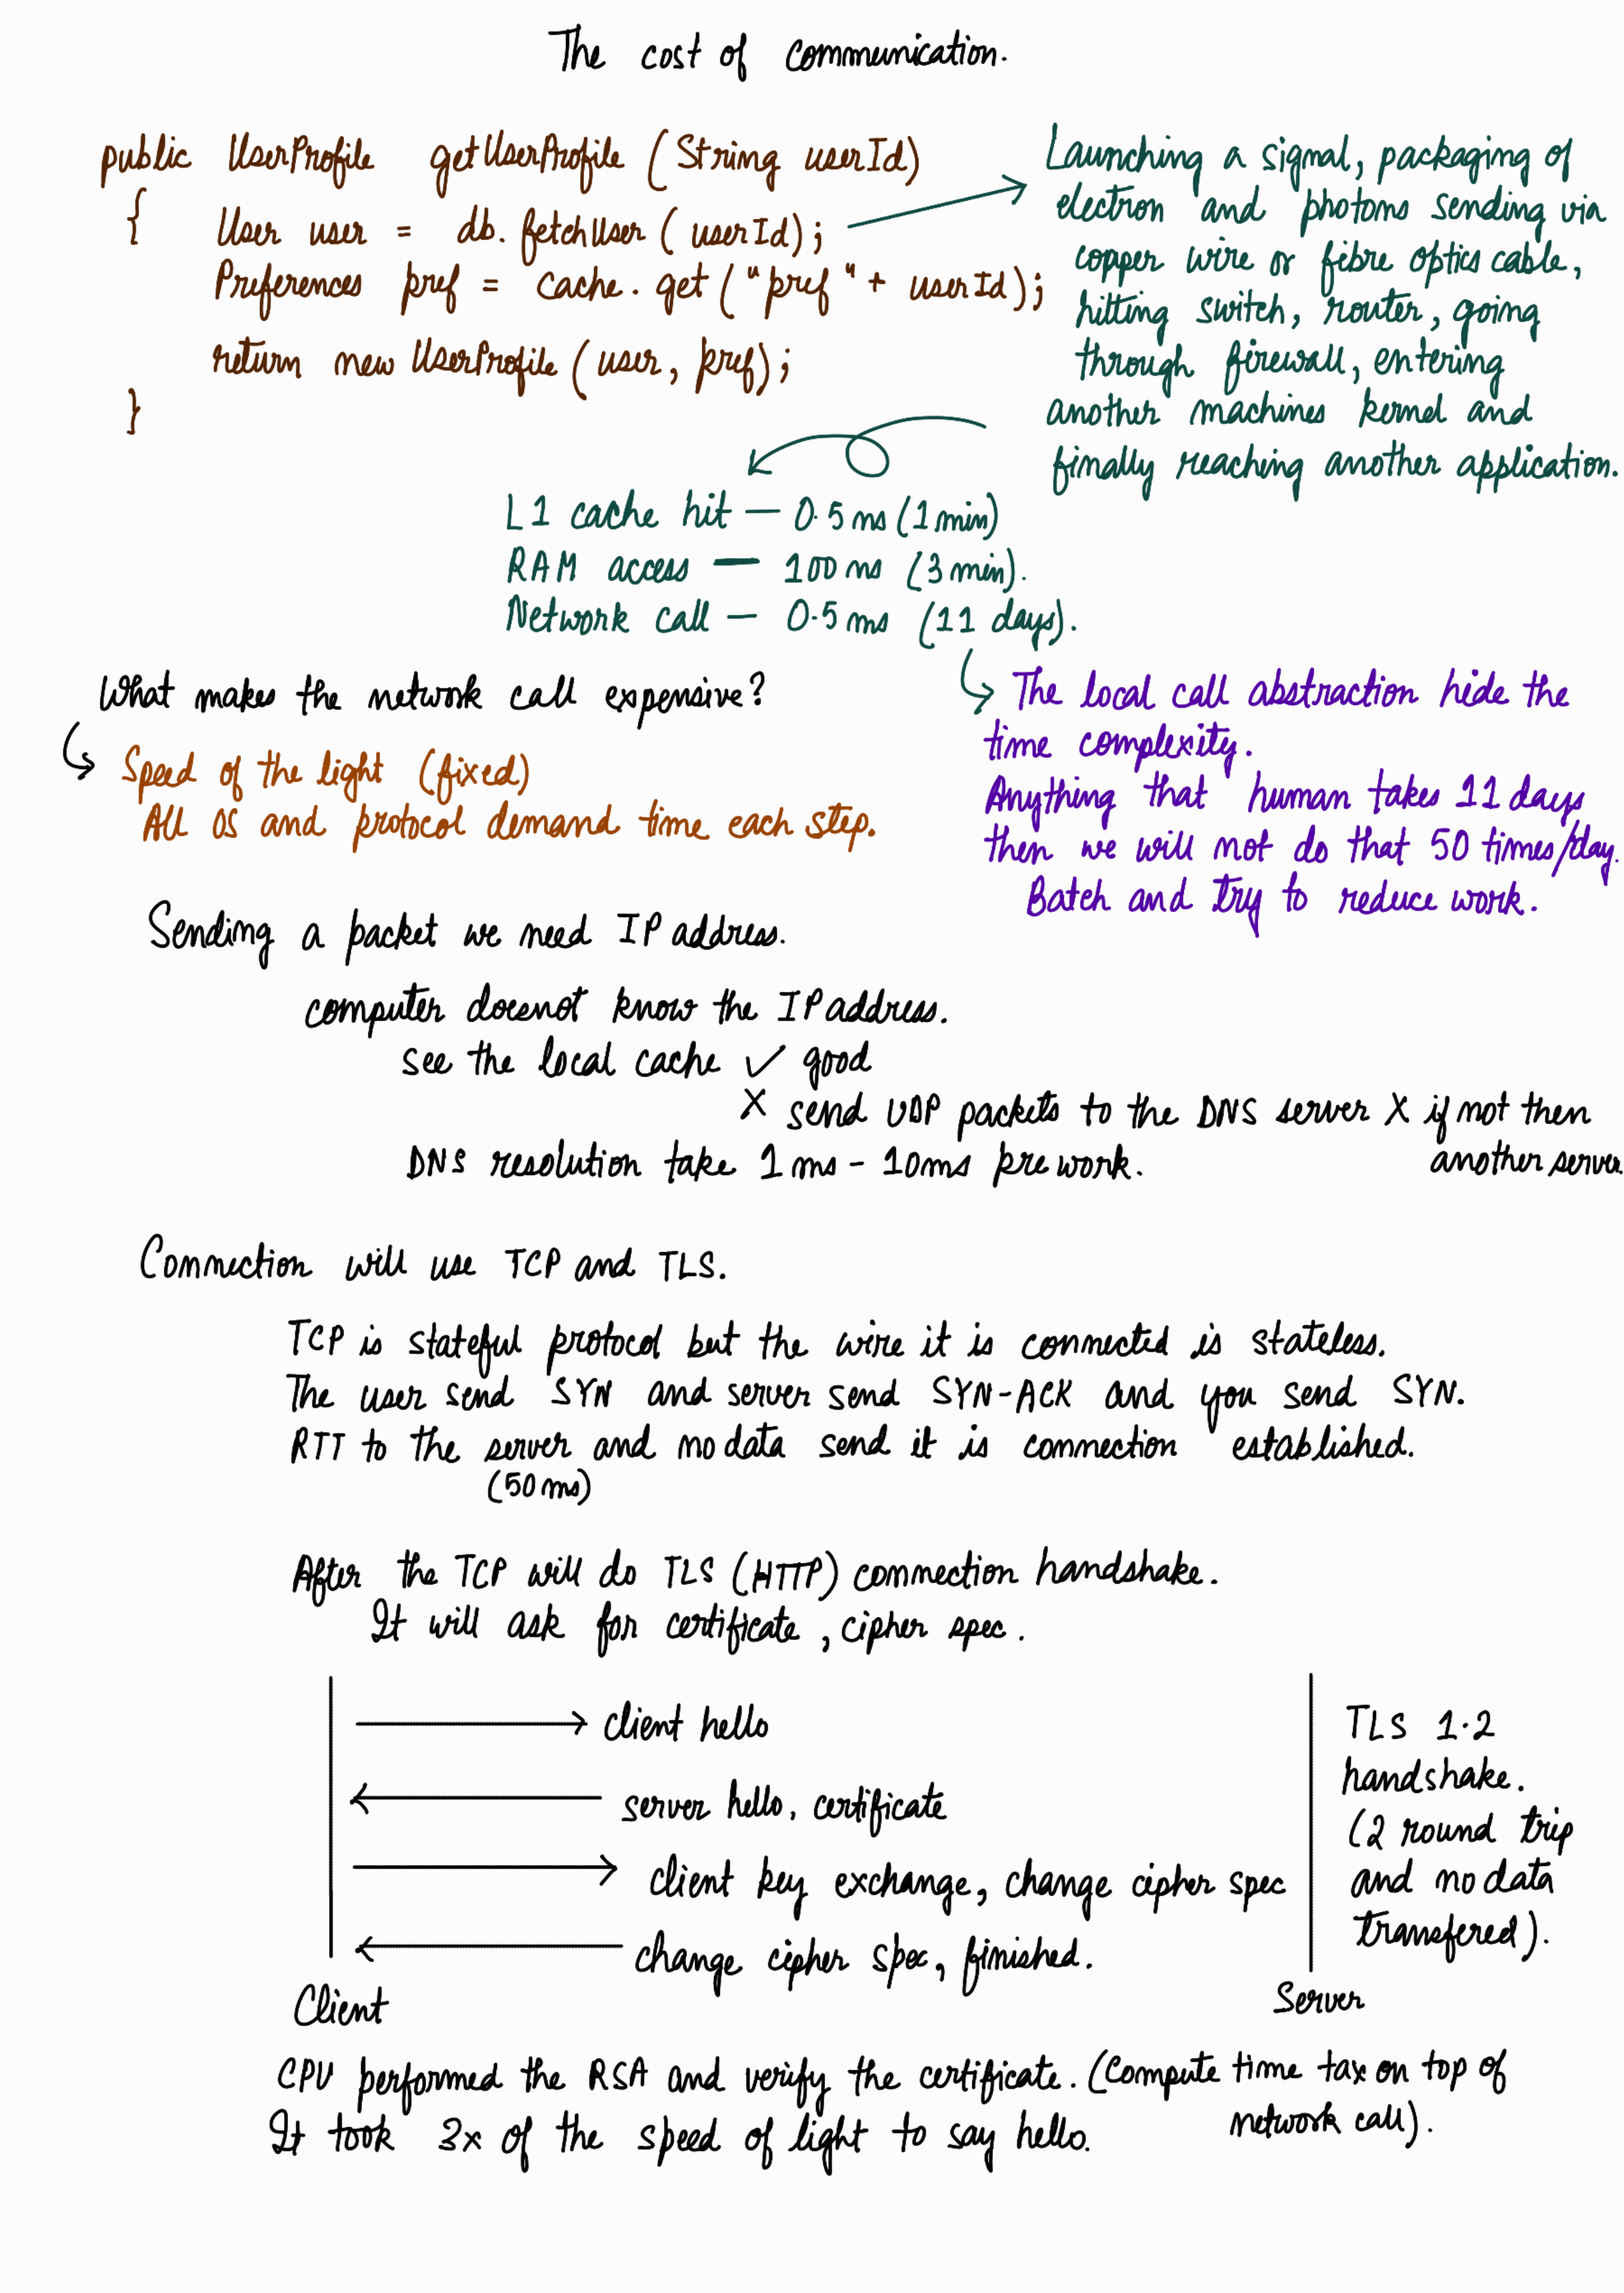 The cost of communication.
public UserProfile getUserProfile (String userId)
{ User user = db.fetchUser (userId);
Preferences pref = cache.get ("pref" + userId);
return new UserProfile (user, pref);
}
Launching a signal, packaging of
electron and photons sending via
copper wire or fibre optics cable,
hitting switch, router, going
through firewall, entering
another machines kernel and
finally reaching another application.
L1 cache hit — 0.5 ns (1 min)
RAM access — 100 ns (3 min).
Network call — 0.5 ms (11 days).
What makes the network call expensive?
Speed of the light (fixed)
All OS and protocol demand time each step.
The local call abstraction hide the
time complexity.
Anything that human takes 11 days
then we will not do that 50 times/day.
Batch and try to reduce work.
Sending a packet we need IP address.
computer doesnot know the IP address.
see the local cache ✓ good
X send UDP packets to the DNS server X if not then
another server.
DNS resolution take 1 ms - 10ms pre work.
Connection will use TCP and TLS.
TCP is stateful protocol but the wire it is connected is stateless.
The user send SYN and server send SYN-ACK and you send SYN.
RTT to the server and no data send it is connection established.
(50 ms)
After the TCP will do TLS (HTTP) connection handshake.
It will ask for certificate, cipher spec.
client hello
server hello, certificate
client key exchange, change cipher spec
change cipher spec, finished.
Client
Server
TLS 1.2
handshake.
(2 round trip
and no data
transfered).
CPU performed the RSA and verify the certificate. (Compute time tax on top of
network call).
It took 3x of the speed of light to say hello.